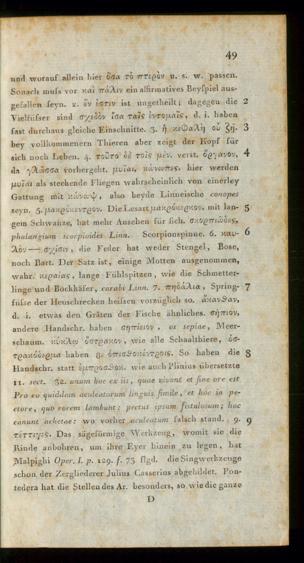 49
und worauf allein hier ὅσα τὸ πτερὸν u. s. w. passen.
Sonach muſs vor καὶ πάλιν ein affirmatives Beyſpiel aus-
gefallen ſeyn. 2. ἓν ἐστιν iſt ungetheilt; dagegen die 2
Vielfüſser ſind σχεδὸν ἴσα ταῖς ἐντομαῖς, d. i. haben
faſt durchaus gleiche Einschnitte. 3. ἡ κεφαλὴ οὐ ζῇ. 3
bey vollkommenern Thieren aber zeigt der Kopf für
ſich noch Leben. 4. τοῦτο δὲ τοῖς μὲν. verſt. ὄργανον, 4
da γλῶσσα vorhergeht. μυῖαι, κώνωπες. hier werden
μυῖαι als stechende Fliegen wahrscheinlich von einerley
Gattung mit κώνωψ, also beyde Linneische conopes
seyn. 5. μακρόκεντρον. Die Lesart μακρόκερκον. mit lan- 5
gem Schwanze, hat mehr Ansehen für sich. σκορπιῶδες,
phalangium scorpioides Linn. Scorpionspinne. 6. καυ- 6
λὸν — σχίσιν, die Feder hat weder Stengel, Bose,
noch Bart. Der Satz ist, einige Motten ausgenommen,
wahr. κεραίας, lange Fühlspitzen, wie die Schmetter-
linge und Bockkäfer, carabi Linn. 7. πηδάλια, Spring- 7
füſse der Heuschrecken heiſsen vorzüglich so. ἄκανθαν,
d. i. etwas den Gräten der Fische ähnliches. σήπιον,
andere Handschr. haben σηπίειον, os sepiae, Meer-
schaum. κύκλῳ ὄστρακον, wie alle Schaalthiere, ὀσ-
τρακόδερμα haben 8. ὀπισθόκεντροις. So haben die 8
Handschr. statt ἐμπροσθοκ. wie auch Plinius übersetzte
11. sect. 32. unum hoc ex iis, quae vivunt et sine ore est
Pro eo quiddam aculeatorum linguis simile, et hoc in pe-
ctore, quo rorem lambunt: pectus ipsum fistulosum; hoc
canunt achetae: wo vorher aculeatum falsch stand. 9. 9
τέττιγες. Das sägeförmige Werkzeug, womit sie die
Rinde anbohren, um ihre Eyer hinein zu legen, hat
Malpighi Oper. I. p. 129. f. 73 flgd. die Singwerkzeuge
schon der Zergliederer Julius Casserius abgebildet. Pon-
tedera hat die Stellen des Ar. besonders, so wie die ganze
D